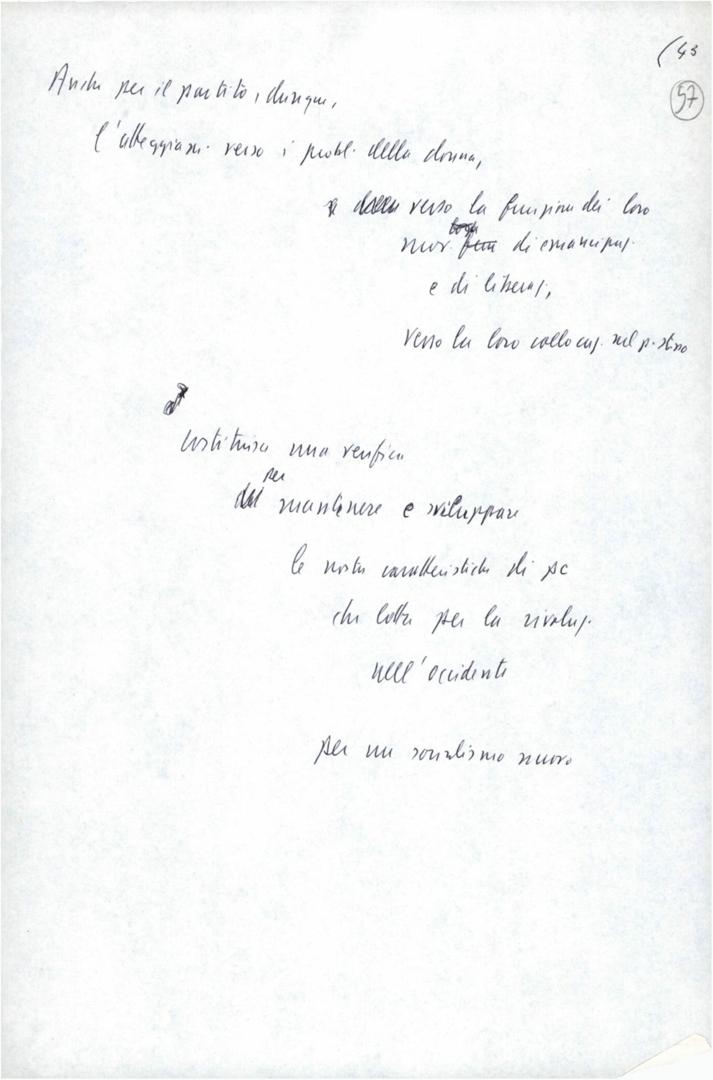 (43
57
Anche per il partito, dunque,
l'atteggiam. verso i probl. della donna,
verso la funzione dei loro
mov. di emancipaz.
e di liberaz,
verso la loro collocaz. nel p. stesso
costituisce una verifica
per
mantenere e sviluppare
le nostre caratteristiche di pc
che lotta per la rivoluz.
nell'occidente
per un socialismo nuovo